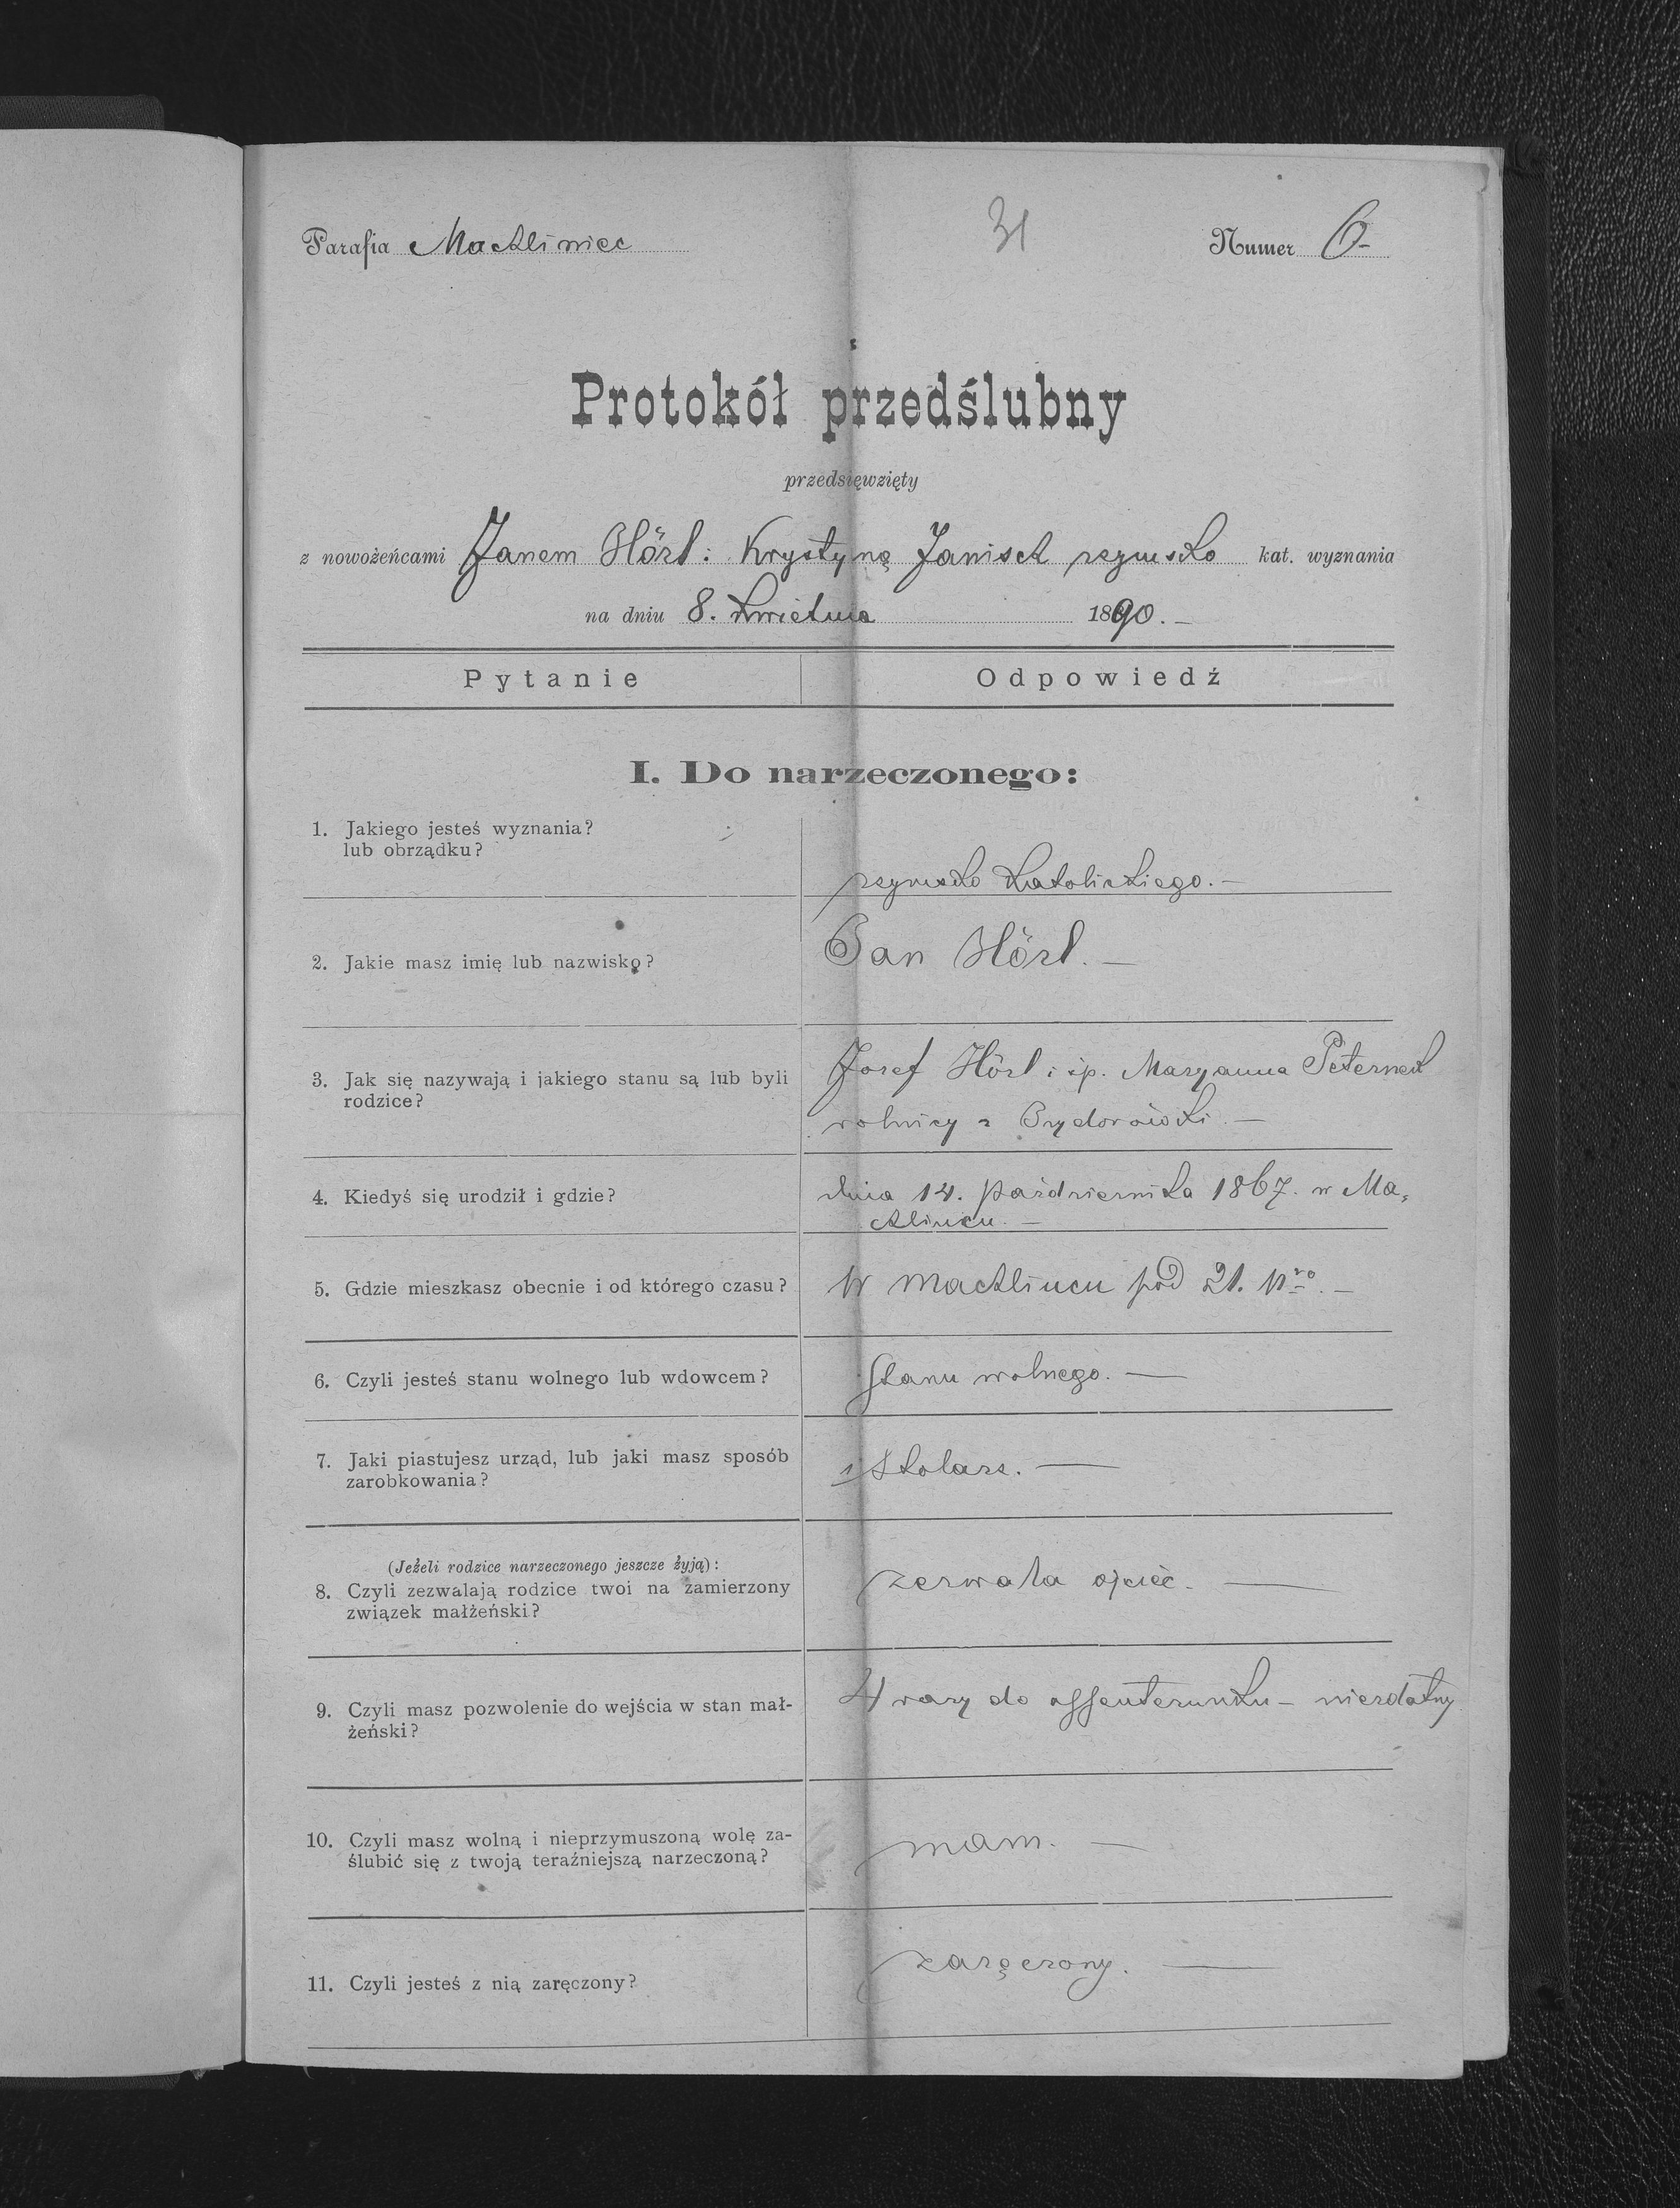 Parafia Machliniec
31
Numer 6
Protokół przedślubny
przedsięwzięty
z nowożeńcami Janem Hörl i Krystyną Janisch rzymsko kat. wyznania
na dniu 8. kwietnia 1890. –
Pytanie Odpowiedź
I. Do narzeczonego:
1. Jakiego jesteś wyznania?
lub obrządku?
rzymsko katolickiego. –
2. Jakie masz imię lub nazwisko?
Jan Hörl. –
3. Jak się nazywają i jakiego stanu są lub byli
rodzice?
Josef Hörl i śp. Maryanna Peternek
rolnicy z Izydorówki. –
4. Kiedyś się urodził i gdzie?
dnia 14. października 1867. w Ma=
chlińcu. –
5. Gdzie mieszkasz obecnie i od którego czasu?
w Machlincu pod 21. nro. –
6. Czyli jesteś stanu wolnego lub wdowcem?
stanu wolnego. –
7. Jaki piastujesz urząd, lub jaki masz sposób
zarobkowania?
stolarz. –
(Jeżeli rodzice narzeczonego jeszcze żyją):
8. Czyli zezwalają rodzice twoi na zamierzony
związek małżeński?
zezwala ojciec. –
9. Czyli masz pozwolenie do wejścia w stan mał-
żeński?
4 razy do assenterunku – niezdatny
10. Czyli masz wolną i nieprzymuszoną wolę za-
ślubić się z twoją teraźniejszą narzeczoną?
mam. –
11. Czyli jesteś z nią zaręczony?
zaręczony. –